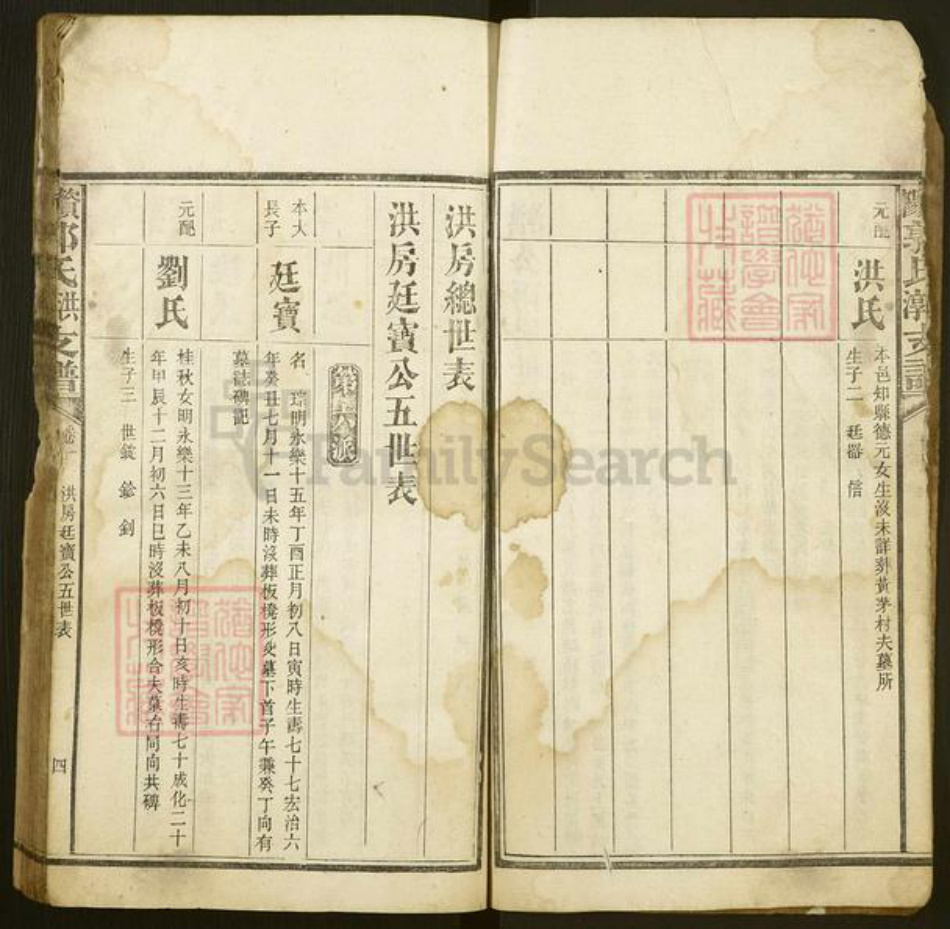 元配
洪氏
本邑知縣德元女生沒未詳葬黃茅村夫墓所
生子二 廷器 信
洪房總世表
洪房廷寶公五世表
第六派
本大
長子
廷寶
名 琮明永樂十五年丁酉正月初八日寅時生壽七十七宏治六
年癸丑七月十一日未時沒葬板櫈形父墓下首子午兼癸丁向有
墓誌碑記
元配
劉氏
桂秋女明永樂十三年乙未八月初十日亥時生壽七十成化二十
年甲辰十二月初六日巳時沒葬板櫈形合夫墓右同向共碑
生子三 世錠 鉁 釗
郭氏洪支譜
卷一
洪房廷寶公五世表
四
FamilySearch